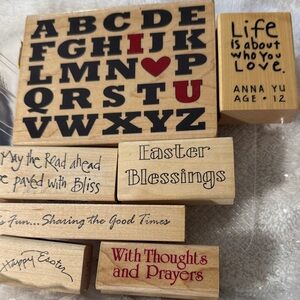 ABCDE
FGHIJK
LMN♥P
QRSTU
VWXYZ
Life
is about
who you
Love.
ANNA YU
AGE • 12
May the Road ahead
be paved with Bliss
Easter
Blessings
Fun... Sharing the Good Times
Happy Easter
With Thoughts
and Prayers